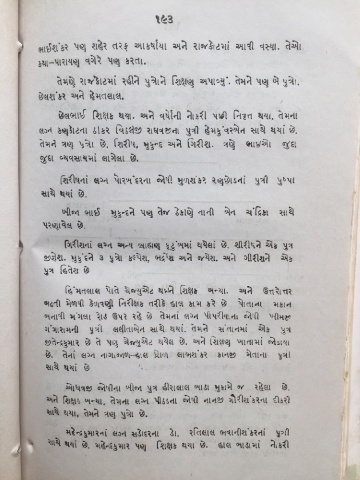 ૧૯૩
ભાઈશંકર પણ શહેર તરફ આકર્ષાયા અને રાજકોટમાં આવી વસ્યા. તેઓ
કથા-પારાયણ વગેરે પણ કરતા.
તેમણે રાજકોટમાં રહીને પુત્રોને શિક્ષણ અપાવ્યું. તેમને પણ બે પુત્રો.
છેલશંકર અને હેમતલાલ.
છેલભાઈ શિક્ષક થયા. અને વર્ષોની નોકરી પછી નિવૃત્ત થયા. તેમના
લગ્ન કણકોટના ઠાકર વિઠલજી રાઘવજીના પુત્રી હેમકુંવરબેન સાથે થયાં છે.
તેમને ત્રણ પુત્રો છે. શિરીષ, મુકુન્દ અને ગિરીશ. ત્રણે ભાઈઓ જુદા
જુદા વ્યવસાયમાં લાગેલા છે.
શિરીષનાં લગ્ન પોરબંદરના જોષી મુળશંકર રણછોડનાં પુત્રી પુષ્પા
સાથે થયાં છે.
બીજા ભાઈ મુકુન્દને પણ તેજ ઠેકાણે નાની બેન ચંદ્રિકા સાથે
પરણાવેલ છે.
ગિરીશનાં લગ્ન અન્ય બ્રાહ્મણ કુટુંબમાં થયેલાં છે. શીરીષને એક પુત્ર
જીગ્નેશ. મુકુંદને ૩ પુત્રો કલ્પેશ, બદ્રેશ અને જયેશ. અને ગીરીશને એક
પુત્ર હિતેશ છે
હિંમતલાલ પોતે ગ્રેજ્યુએટ થઈને શિક્ષક બન્યા. અને ઉત્તરોત્તર
બઢતી મેળવી કેળવણી નિરીક્ષક તરીકે હાલ કામ કરે છે પોતાના મકાન
બનાવી મવલા રોડ ઉપર રહે છે તેમનાં લગ્ન પીપરીયાના જોષી ખીમજી
ગંગારામની પુત્રી લલીતાબેન સાથે થયાં. તેમને સંતાનમાં એક પુત્ર
જીતેન્દ્રકુમાર છે તે પણ ગ્રેજ્યુએટ થયેલ છે. અને રોલણ ખાતામાં જોડાયા
છે. તેનાં લગ્ન નાગાજાળ-હાલ ધ્રોળ લાભશંકર કાનજી મેતાના પુત્રી
સાથે થયાં છે
ઓધવજી જોષીના બીજા પુત્ર હીરાલાલ ખાઢા મુકામે જ રહેલા છે.
અને શિક્ષક બન્યા, તેમના લગ્ન પીઠડના જોષી નાનજી ગૌરીશંકરના દીકરી
સાથે થયા, તેમને ત્રણ પુત્રો છે.
મહેન્દ્રકુમારનાં લગ્ન સડોદરના ડો. રતિલાલ ભવાનીશંકરનાં પુત્રી
સાથે થયાં છે. મહેન્દ્રકુમાર પણ શિક્ષક થયા છે. હાલ ખાઢામાં નોકરી